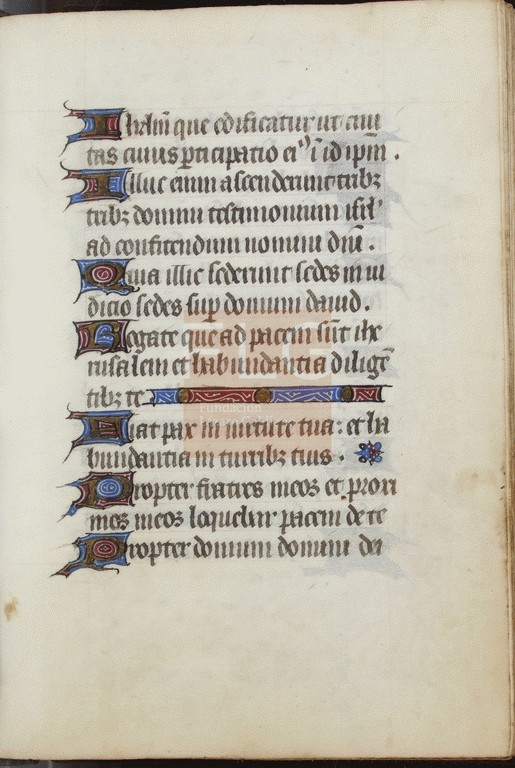 Ihrlm̄ que edificatur ut ciui
tas cuius p̱ticipatio eiꝰ ī id ipm̄ .
Illuc enim ascenderunt tribꝫ
tribꝫ domini testimonium isrl'
ad confitendum nomini dn̄i .
Quia illic sederunt sedes in iu
dicio sedes sup̱ domum dauid .
Rogate que ad pacem sūt ihe
rusalem et habundantia diligē
tibꝫ te
Fiat pax in uirtute tua : et ha
bundantia in turribꝫ tuis .
Propter fratres meos et proxi
mos meos loquebar pacem de te
Propter domum domini dei
Fundación